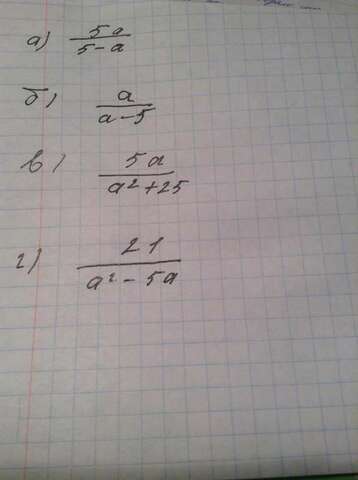 а) 5a / 5-a
б) a / a-5
в) 5a / a²+25
г) 21 / a²-5a